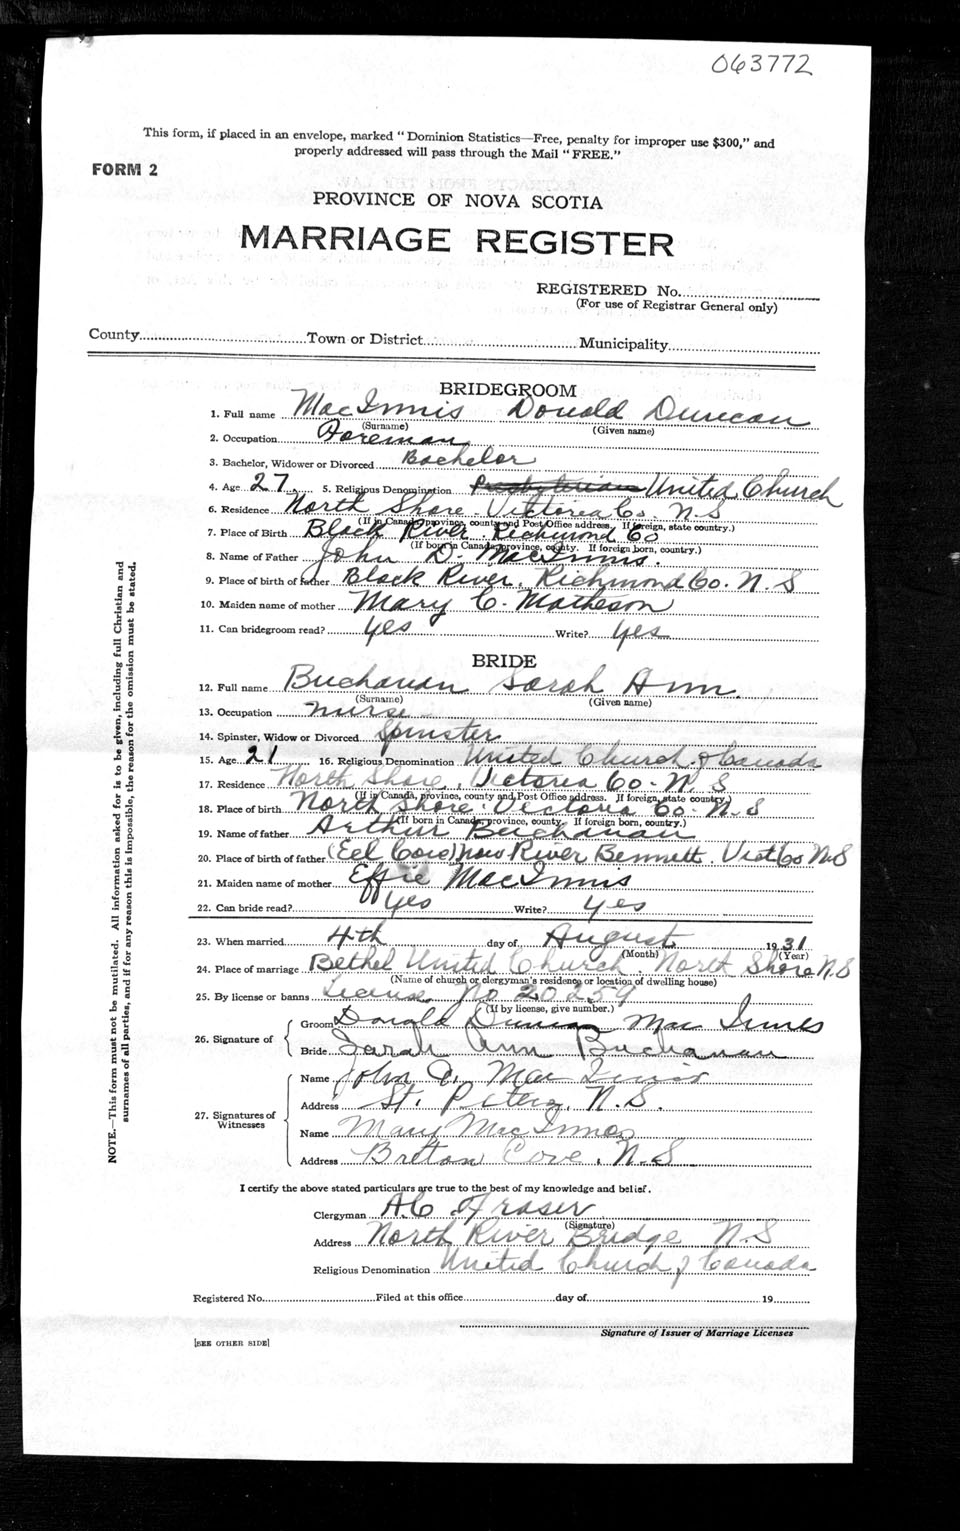 063772
This form, if placed in an envelope, marked "Dominion Statistics—Free, penalty for improper use $300," and
properly addressed will pass through the Mail "FREE."
FORM 2
PROVINCE OF NOVA SCOTIA
MARRIAGE REGISTER
REGISTERED No.
(For use of Registrar General only)
County Town or District Municipality
BRIDEGROOM
1. Full name MacInnis Donald Duncan
(Surname) (Given name)
2. Occupation Foreman
3. Bachelor, Widower or Divorced Bachelor
4. Age 27 5. Religious Denomination Presbyterian United Church
6. Residence North Shore Victoria Co. N.S
(If in Canada, province, county and Post Office address. If foreign, state country.)
7. Place of Birth Black River, Richmond Co
(If born in Canada, province, county. If foreign born, country.)
8. Name of Father John D. MacInnis.
9. Place of birth of father Black River, Richmond Co. N.S
10. Maiden name of mother Mary C. Matheson
11. Can bridegroom read? yes Write? yes
BRIDE
12. Full name Buchanan Sarah Ann.
(Surname) (Given name)
13. Occupation nurse
14. Spinster, Widow or Divorced Spinster
15. Age 21 16. Religious Denomination United Church of Canada
17. Residence North Shore, Victoria Co. N.S
(If in Canada, province, county and Post Office address. If foreign, state country.)
18. Place of birth North Shore Victoria Co. N.S
(If born in Canada, province, county. If foreign born, country.)
19. Name of father Arthur Buchanan
20. Place of birth of father (Eel Cove) now River Bennett. Vict Co N.S
21. Maiden name of mother Effie MacInnis
22. Can bride read? yes Write? yes
23. When married 4th day of August 1931
(Month) (Year)
24. Place of marriage Bethel United Church, North Shore N.S
(Name of church or clergyman's residence or location of dwelling house)
25. By license or banns License No 20259
(If by license, give number.)
26. Signature of
Groom Donald Duncan Mac Innes
Bride Sarah Ann Buchanan
27. Signatures of Witnesses
Name John D. Mac Innis
Address St. Peters, N.S.
Name Mary MacInnes
Address Breton Cove, N.S
I certify the above stated particulars are true to the best of my knowledge and belief.
Clergyman A C Fraser
(Signature)
Address North River Bridge N.S
Religious Denomination United Church of Canada
Registered No. Filed at this office day of 19
Signature of Issuer of Marriage Licenses
[SEE OTHER SIDE]
NOTE.—This form must not be mutilated. All information asked for is to be given, including full Christian and
surnames of all parties, and if for any reason this is impossible, the reason for the omission must be stated.